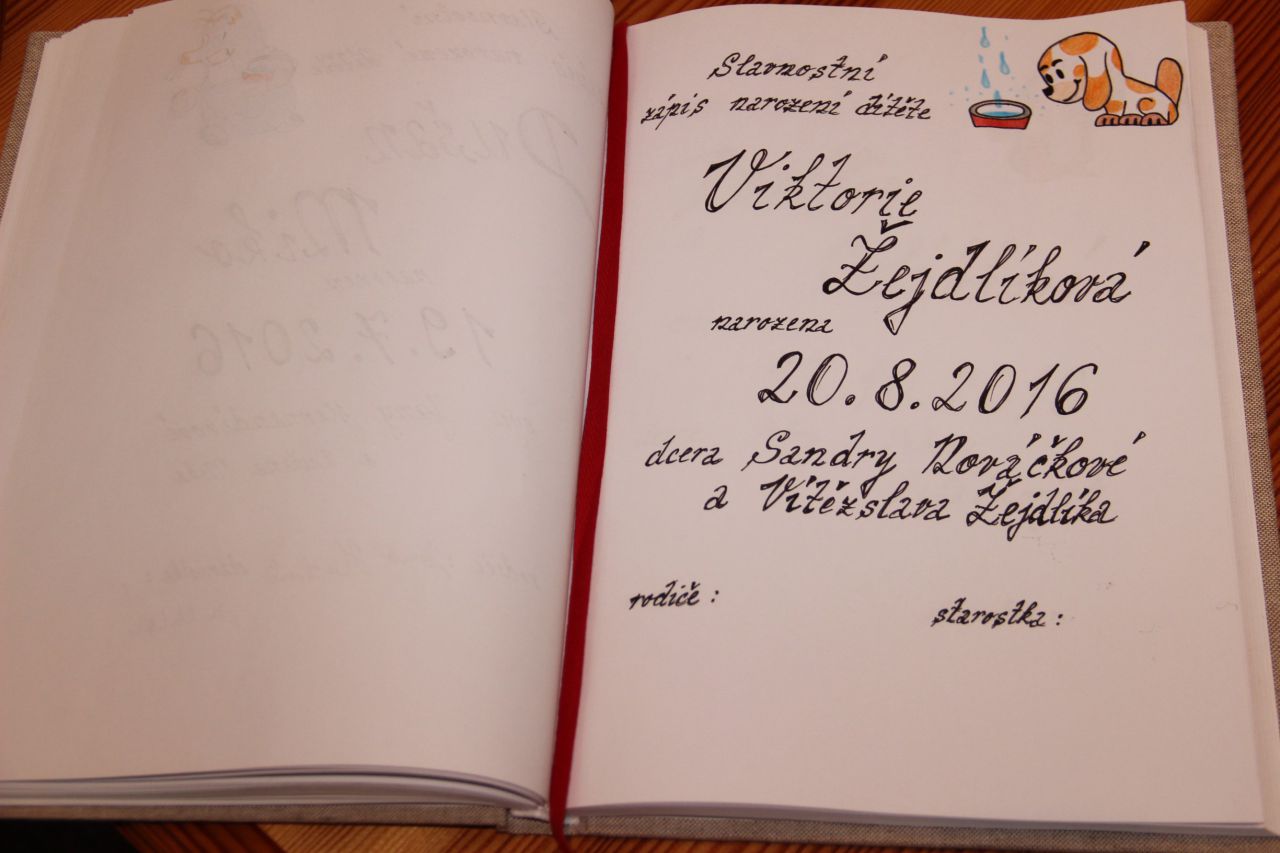 Slavnostní
zápis narození dítěte
Viktorie
Žejdlíková
narozena
20.8.2016
dcera Sandry Nováčkové
a Vítězslava Žejdlíka
rodiče :
starostka :
Mika
19.7.2016